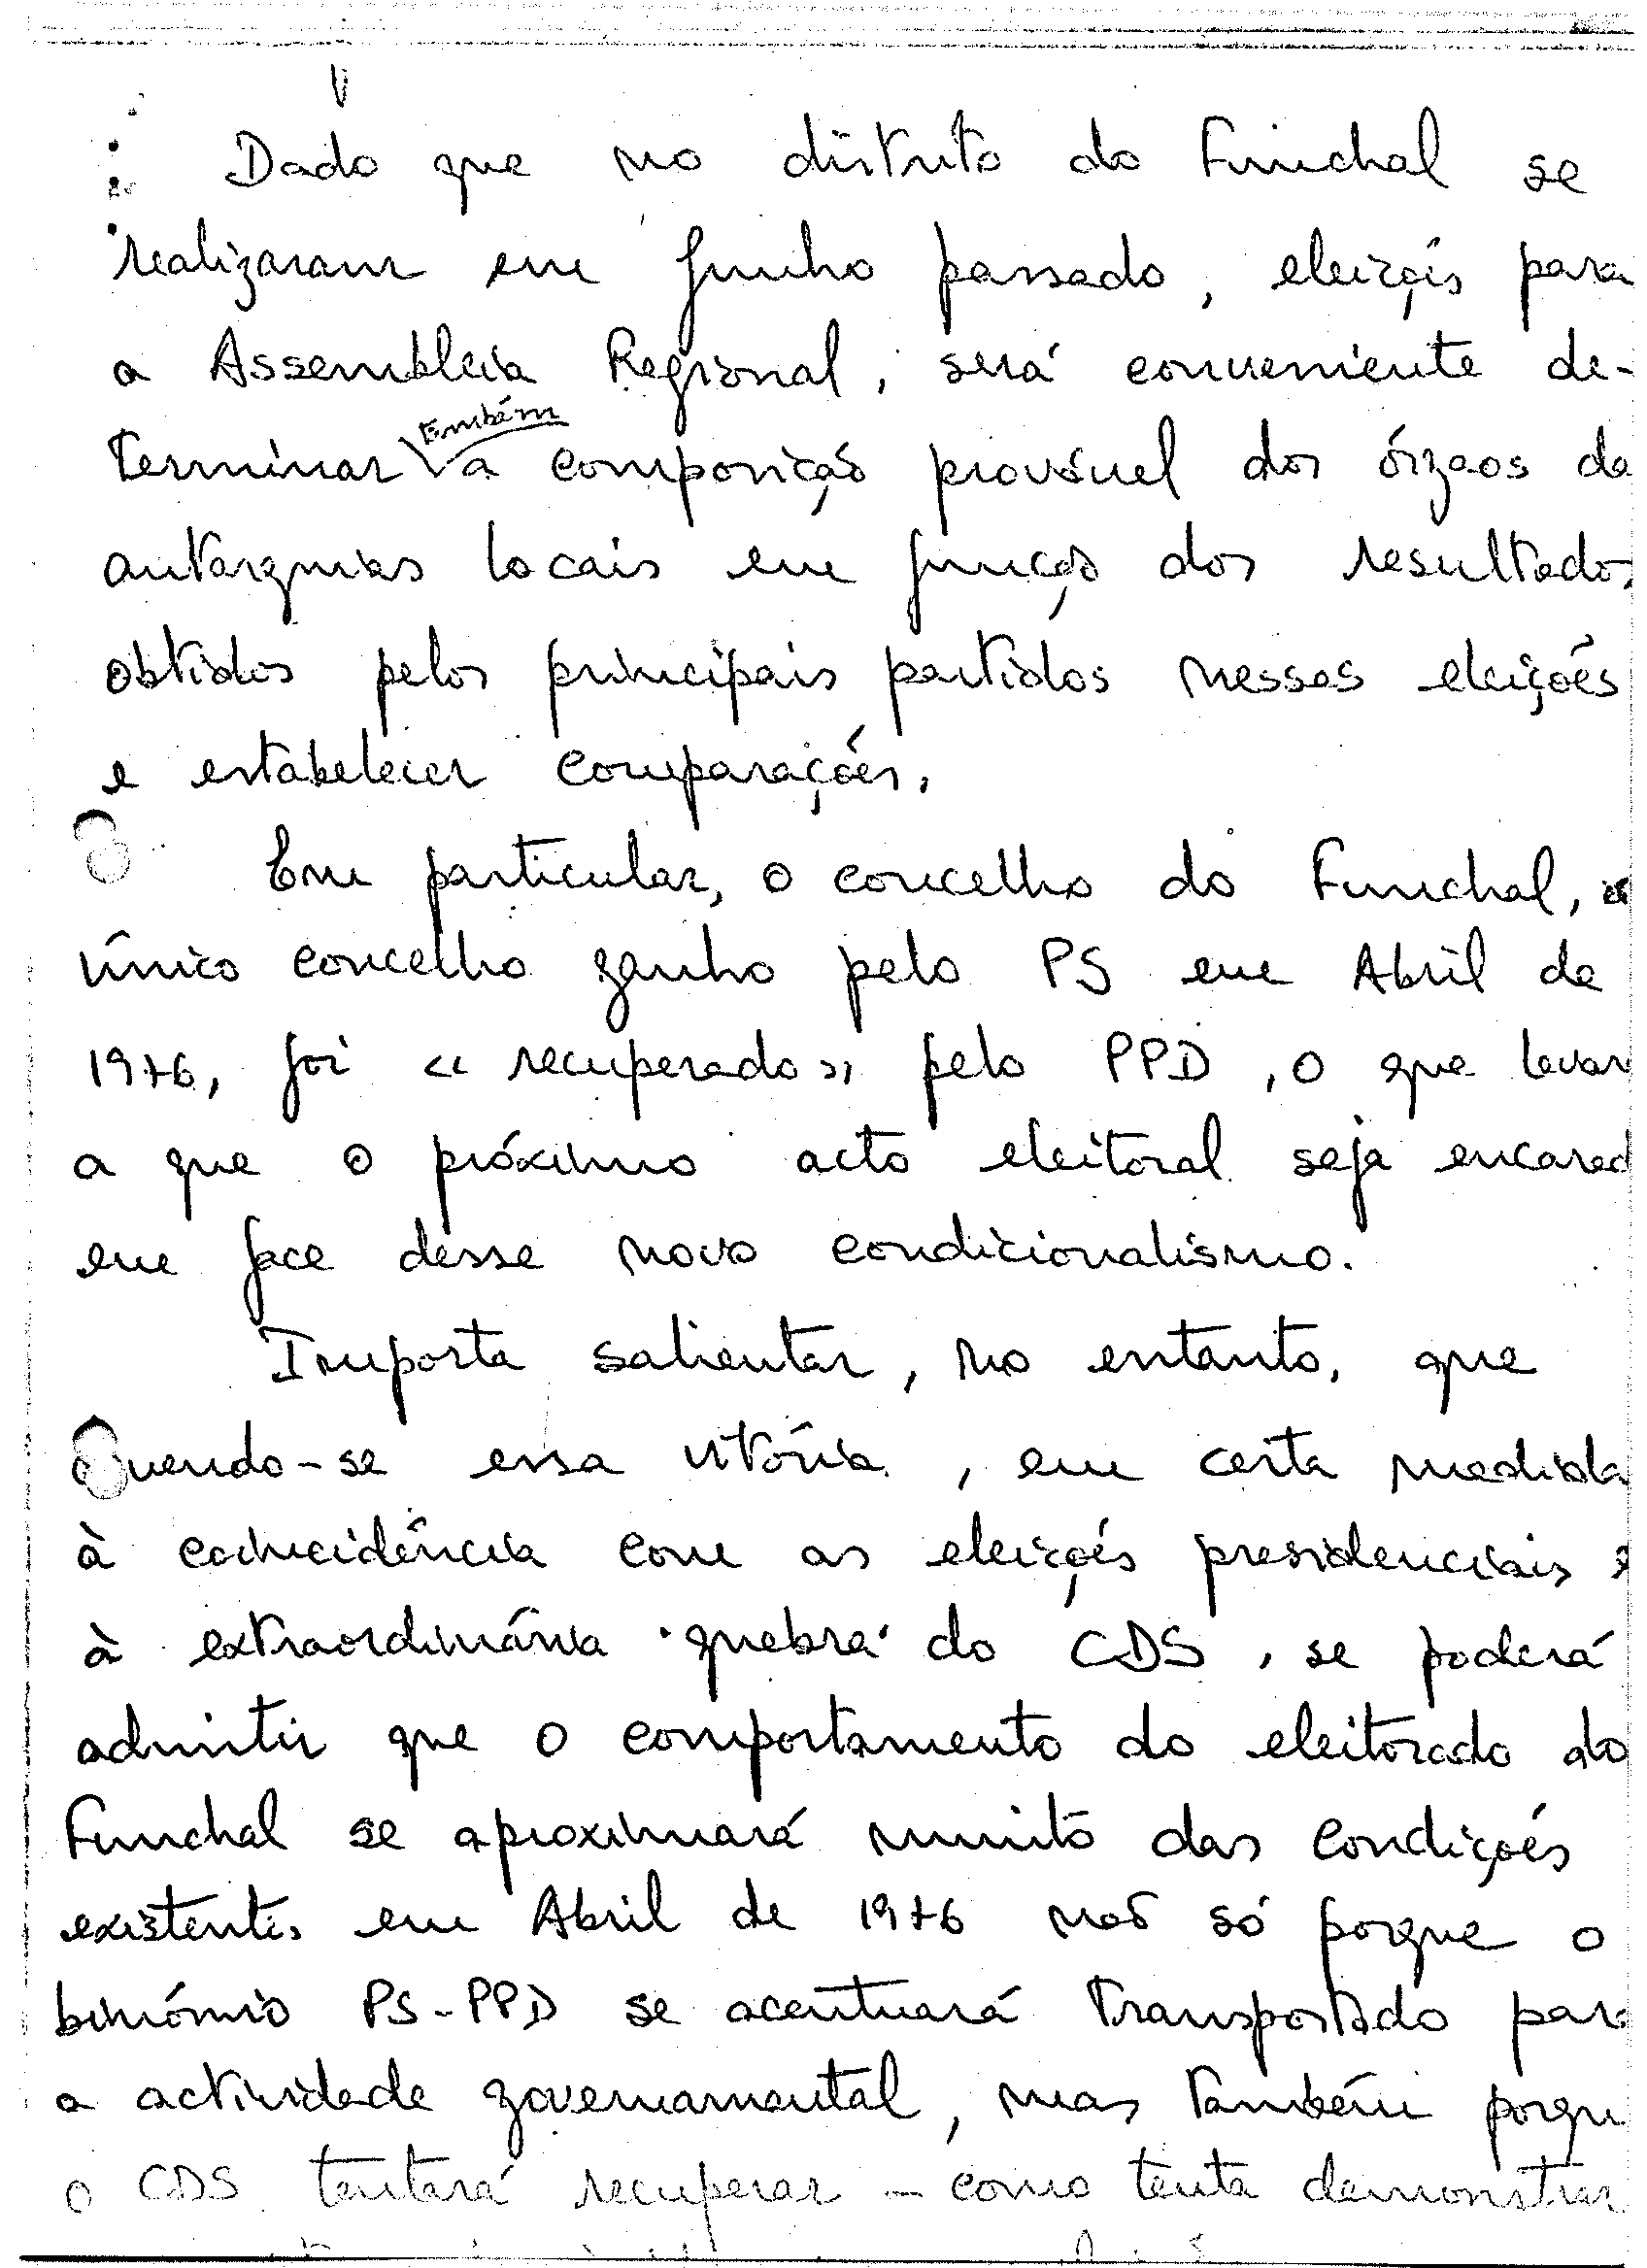 Dado que no distrito do Funchal se
realizaram em Junho passado, eleições para
a Assembleia Regional, será conveniente de-
também
terminar a composição provável dos órgãos da
autarquias locais em função dos resultados
obtidos pelos principais partidos nessas eleições
e estabelecer comparações.
Em particular, o concelho do Funchal, o
único concelho ganho pelo PS em Abril de
1976, foi «recuperado» pelo PPD, o que levar
a que o próximo acto eleitoral seja encarad
em face desse novo condicionalismo.
Importa salientar, no entanto, que
devendo-se essa vitória, em certa medida
à coincidência com as eleições presidenciais e
à extraordinária quebra do CDS, se poderá
admitir que o comportamento do eleitorado do
Funchal se aproximará muito das condições
existentes em Abril de 1976 não só porque o
binómio PS-PPD se acentuará transportado para
a actividade governamental, mas também porqu
o CDS tentará recuperar - como tenta demonstrar